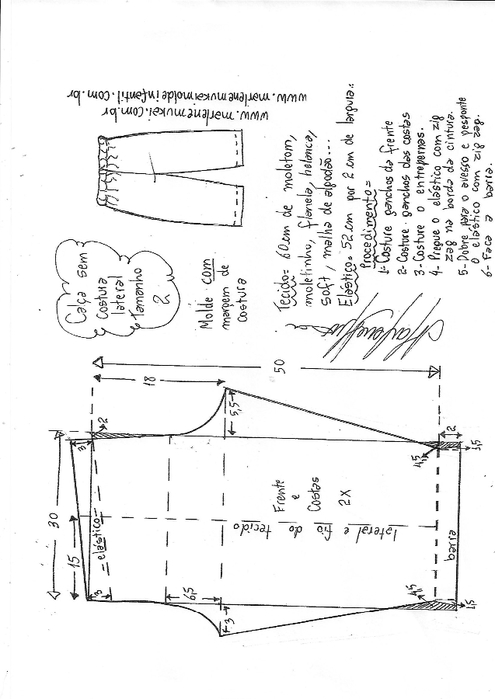 www.marlenemukaimoldeinfantil.com.br
www.marlenemukai.com.br
Caça sem
costura
lateral
Tamanho
2
Molde com
margem de
costura
Tecido= 60cm de moletom,
moletinho, flanela, helanca,
soft, malha de algodão...
Elástico= 52cm por 2 cm de largura.
Procedimento=
1- Costure ganchos da frente
2- Costure ganchos das costas
3- Costure o entrepernas.
4- Pregue o elástico com zig
zag na borda da cintura.
5- Dobre para o avesso e pesponte
o elástico com zig zag.
6- Faça a barra.
50
18
2
5,5
2
1,5
4,5
3
30
15
elástico
Frente
e
Costas
2X
lateral e fio do tecido
barra
3
3
4,5
1,5